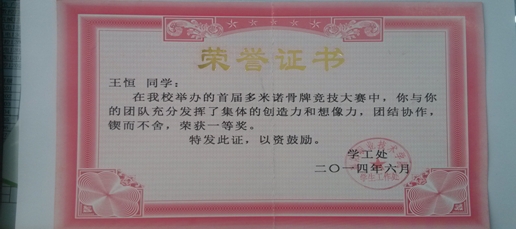 荣誉证书
王恒 同学:
在我校举办的首届多米诺骨牌竞技大赛中，你与你
的团队充分发挥了集体的创造力和想像力，团结协作，
锲而不舍，荣获一等奖。
特发此证，以资鼓励。
学工处
二〇一四年六月